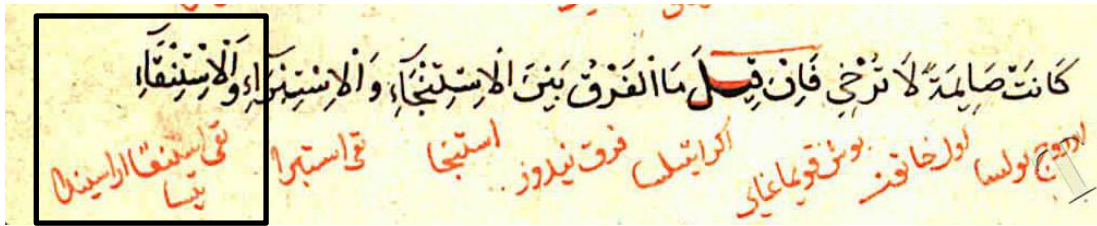 كَانَتْ صَايِمَةً لَا تُرْخِي فَاِنْ قِيلَ مَا الْفَرْقُ بَيْنَ الْاِسْتِنْجَآءِ وَالْاِسْتِبْرَآءِ وَالْاِسْتِنْقَآءِ
اوروج بولسا اول خاتون بوش قويماغاي اكر ايتلسا فرق نيدور استنجا تقى استبرا تقى استنقا اراسيندا